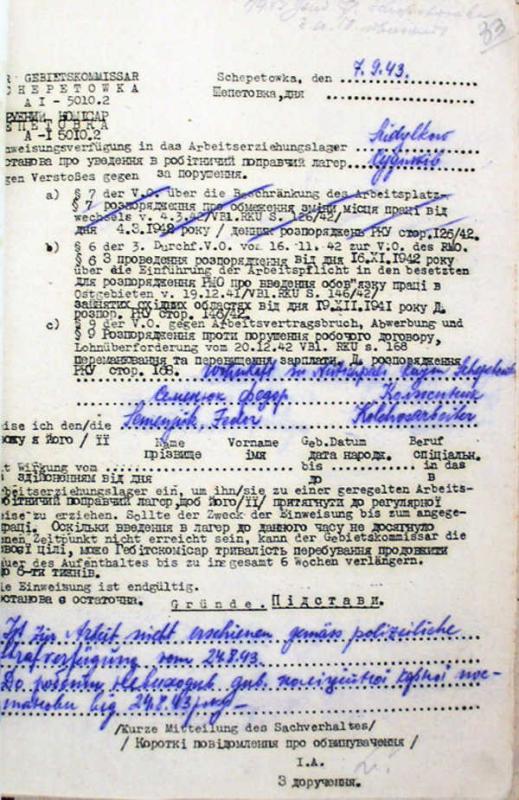 33
R GEBIETSKOMMISSAR
CHEPETOWKA
A I - 5010.2
Schepetowka, den 7.9.43.
Шепетовка, дня
А-I 5010.2
nweisungsverfügung in das Arbeitserziehungslager
станова про уведення в робітничий поправчий лагер
gen Verstoßes gegen за порушення.
a) § 7 der V.O. über die Beschränkung des Arbeitsplatz-
§ 7 розпорядження про обмеження зміни місця праці від
wechsels v. 4.3.42/VBl.RKU S. 126/42/
дня 4.3.1942 року / денник розпоряджень РКУ стор.126/42.
b) § 6 der 3. Durchf.V.O. vom 16.11.42 zur V.O. des RMO.
§ 6 3 проведення розпорядження від дня 16.XI.1942 року
über die Einführung der Arbeitspflicht in den besetzten
для розпорядження РМО про введення обов"язку праці в
Ostgebieten v. 19.12.41/VBl.RKU S. 146/42/
занятих східних областях від дня 19.XII.1941 року Д.
розпор. РКУ стор. 146/42.
c) § 9 der V.O. gegen Arbeitsvertragsbruch, Abwerbung und
§ 9 Розпорядження проти порушення робочого договору,
Lohnüberforderung vom 20.12.42 VBl. RKU s. 168
переманювання та перевищення зарплати. Д. розпорядження
РКУ стор. 168. Wohnhaft in
Семенюк Федор Колхозник
eise ich den/die Semenjuk, Fedor Kolchosarbeiter
вожу я його / її Name Vorname Geb.Datum Beruf
прізвище імя дата народж. спіціальн.
t Wirkung vom bis in das
з здійсненням від дня до в
beitserziehungslager ein, um ihn/sie zu einer geregelten Arbeits-
бітничий поправчий лагер, щоб його/її/ притягнути до регулярної
eise zu erziehen. Sollte der Zweck der Einweisung bis zum angege-
праці. Оскільки введення в лагер до данного часу не досягнуло
nen Zeitpunkt nicht erreicht sein, kann der Gebietskommissar die
цілі, може Гебітскомісар тривалість перебування продовжити
auer des Aufenthaltes bis zu insgesamt 6 Wochen verlängern.
до 6-ти тижнів.
ie Einweisung ist endgültig.
останова є остаточна.
Gründe. Підстави.
Ist zur Arbeit nicht erschienen gemäss polizeiliche
Strafverfügung vom 24.8.43.
До роботи невиходив див. поліційної пос-
танови від 24.8.43 року
/Kurze Mitteilung des Sachverhaltes/
/ Короткі повідомлення про обвинувачення /
I.A.
З доручення.